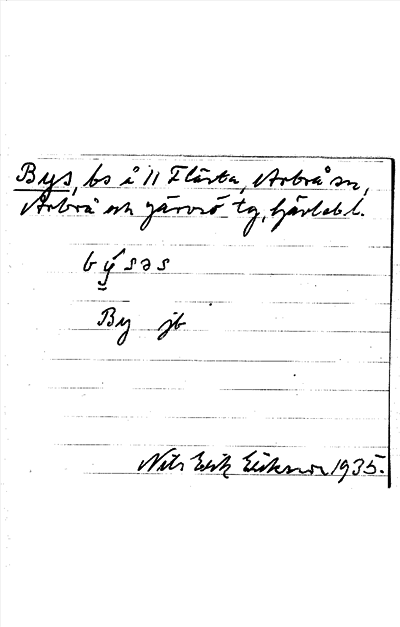 Bys, bs å 11 Flästa, Arbrå sn,
Arbrå och Järvsö tg, Gävlebl.
býsəs
By jb
Nils Erik Eriksson 1935.